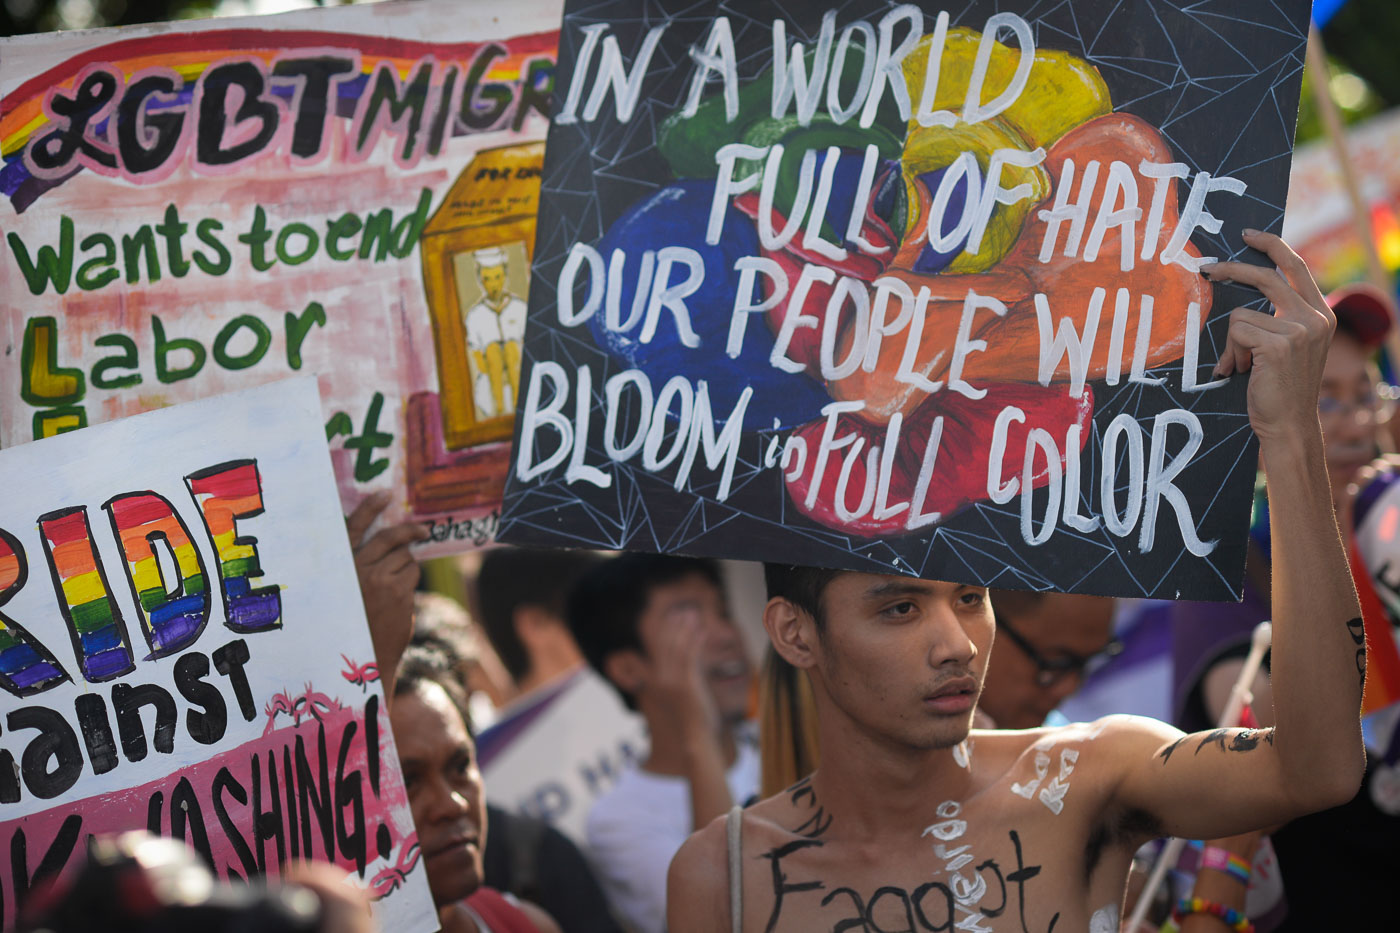 LGBT MIGR
Wants to end
Labor
rt
Bahagh
IN A WORLD
FULL OF HATE
OUR PEOPLE WILL
BLOOM in FULL COLOR
RIDE
gainst
WASHING!
Faggot
weirdo